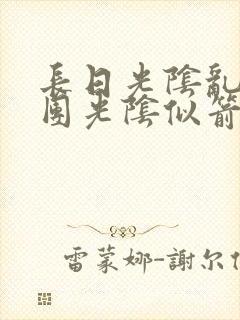 長日光陰亂
團光陰似箭
雷蒙娜-謝尔